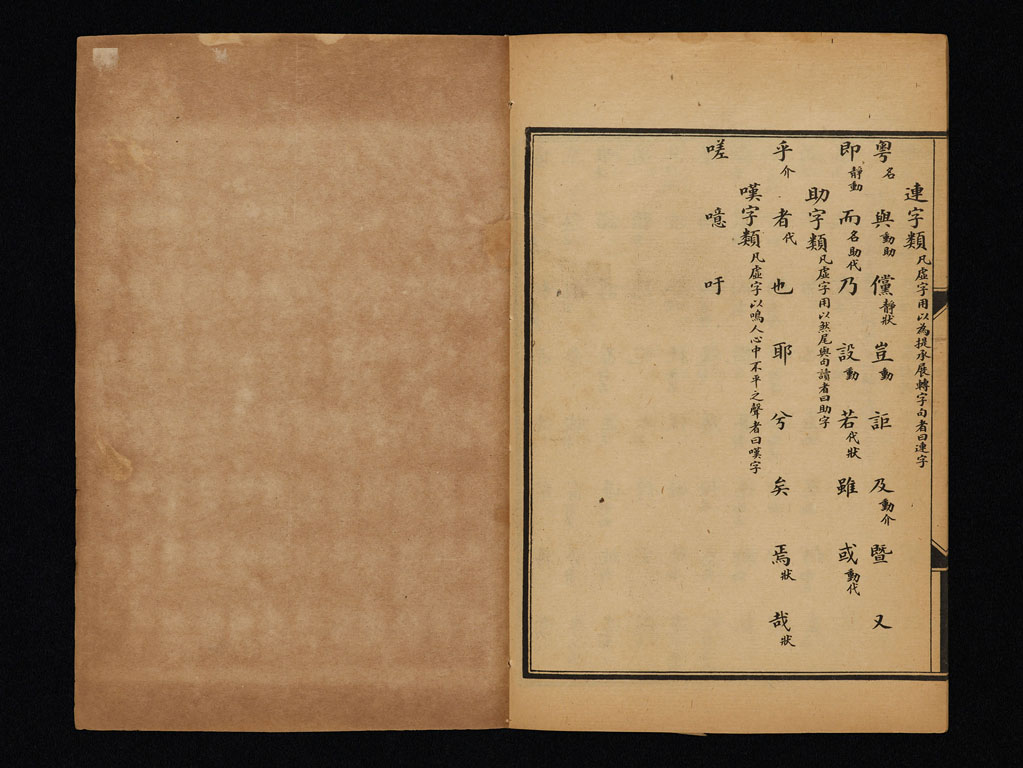 連字類 凡虛字用以為提承展轉字句者曰連字
粵名 與動助 儻靜狀 豈動 詎 及動介 暨 又
即靜動 而名助代 乃 設動 若代狀 雖 或動代
助字類 凡虛字用以煞尾與句讀者曰助字
乎介 者代 也 耶 兮 矣 焉狀 哉狀
嘆字類 凡虛字以鳴人心中不平之聲者曰嘆字
嗟 噫 吁